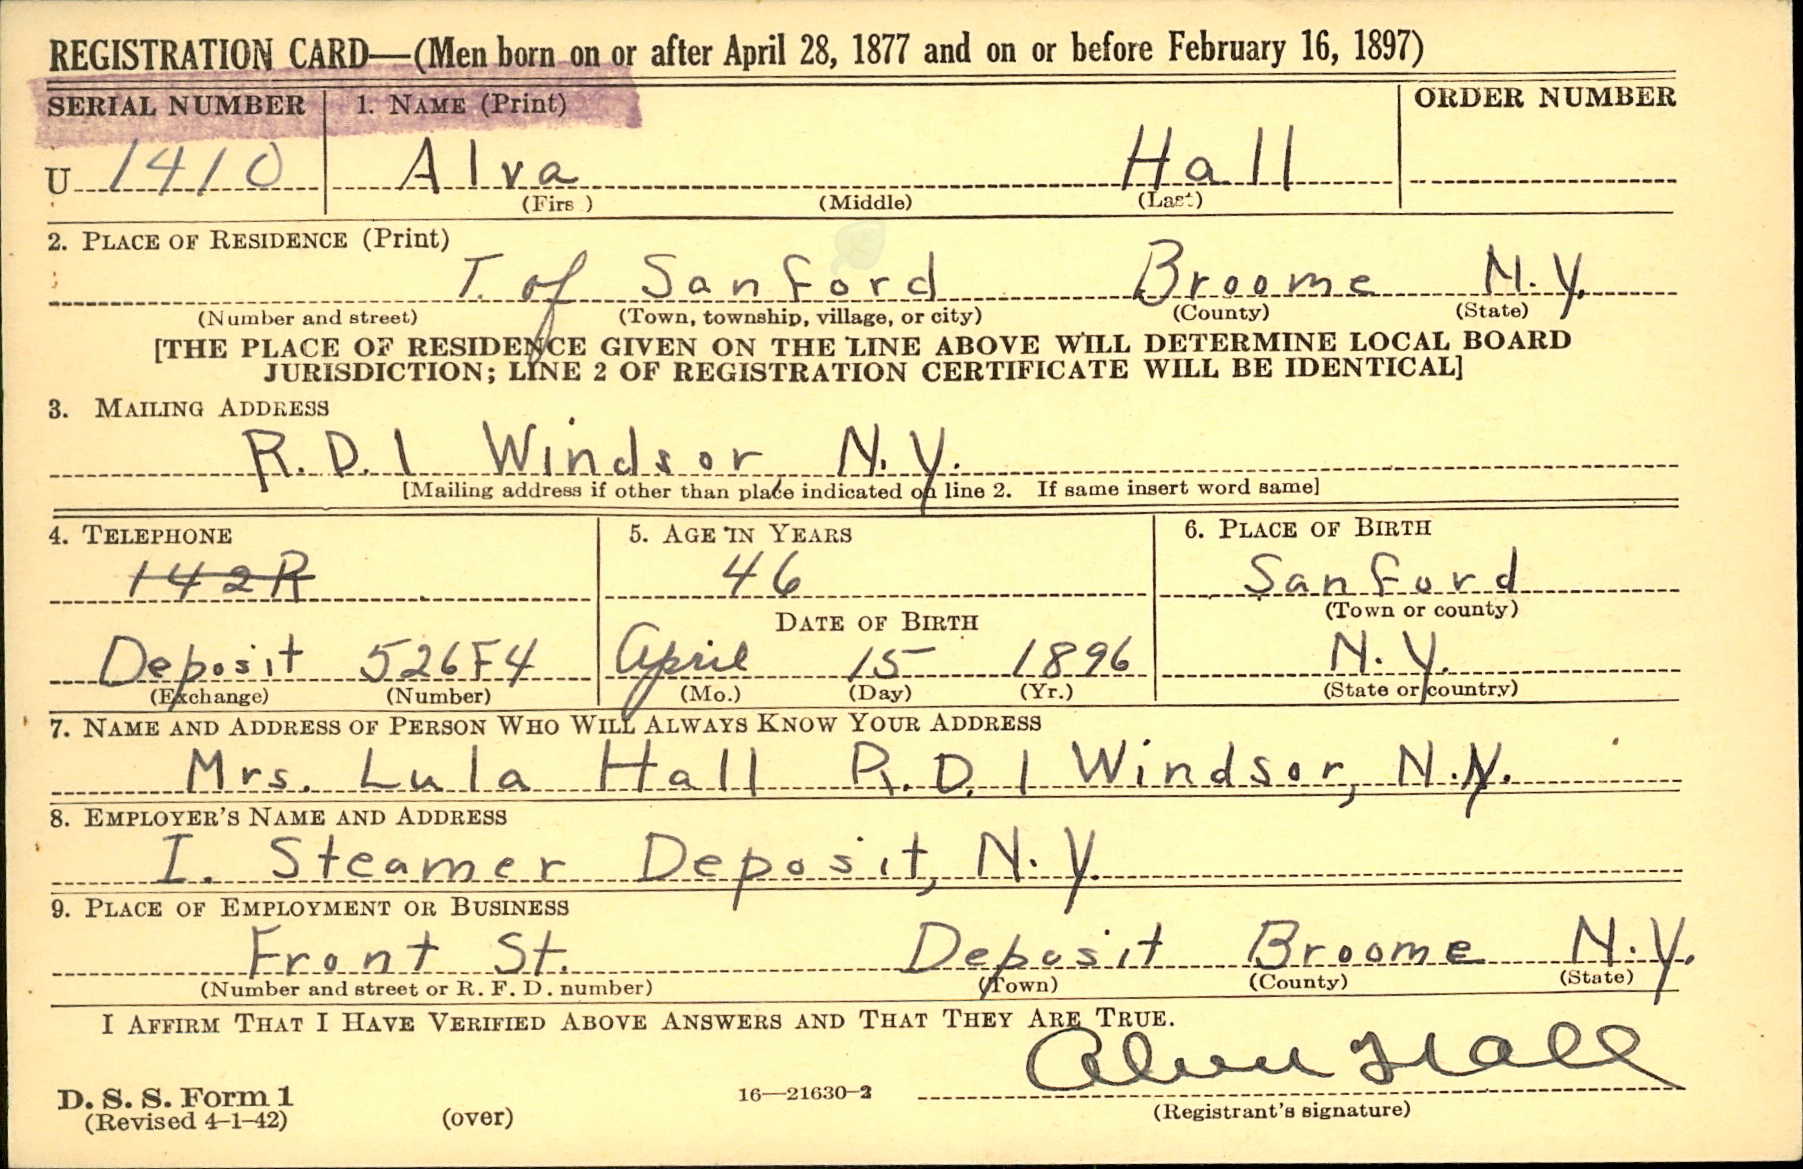 REGISTRATION CARD—(Men born on or after April 28, 1877 and on or before February 16, 1897)
SERIAL NUMBER 1. NAME (Print) ORDER NUMBER
U 1410 Alva Hall
(Firs ) (Middle) (Last)
2. PLACE OF RESIDENCE (Print)
T. of Sanford Broome N.Y.
(Number and street) (Town, township, village, or city) (County) (State)
[THE PLACE OF RESIDENCE GIVEN ON THE LINE ABOVE WILL DETERMINE LOCAL BOARD
JURISDICTION; LINE 2 OF REGISTRATION CERTIFICATE WILL BE IDENTICAL]
3. MAILING ADDRESS
R.D. 1 Windsor N.Y.
[Mailing address if other than place indicated on line 2. If same insert word same]
4. TELEPHONE 5. AGE IN YEARS 6. PLACE OF BIRTH
142R 46 Sanford
DATE OF BIRTH (Town or county)
Deposit 526F4 April 15 1896 N.Y.
(Exchange) (Number) (Mo.) (Day) (Yr.) (State or country)
7. NAME AND ADDRESS OF PERSON WHO WILL ALWAYS KNOW YOUR ADDRESS
Mrs. Lula Hall R.D. 1 Windsor, N.Y.
8. EMPLOYER'S NAME AND ADDRESS
I. Steamer Deposit, N.Y.
9. PLACE OF EMPLOYMENT OR BUSINESS
Front St. Deposit Broome N.Y.
(Number and street or R. F. D. number) (Town) (County) (State)
I AFFIRM THAT I HAVE VERIFIED ABOVE ANSWERS AND THAT THEY ARE TRUE.
Alva Hall
D. S. S. Form 1 16—21630-2
(Revised 4-1-42) (over) (Registrant's signature)